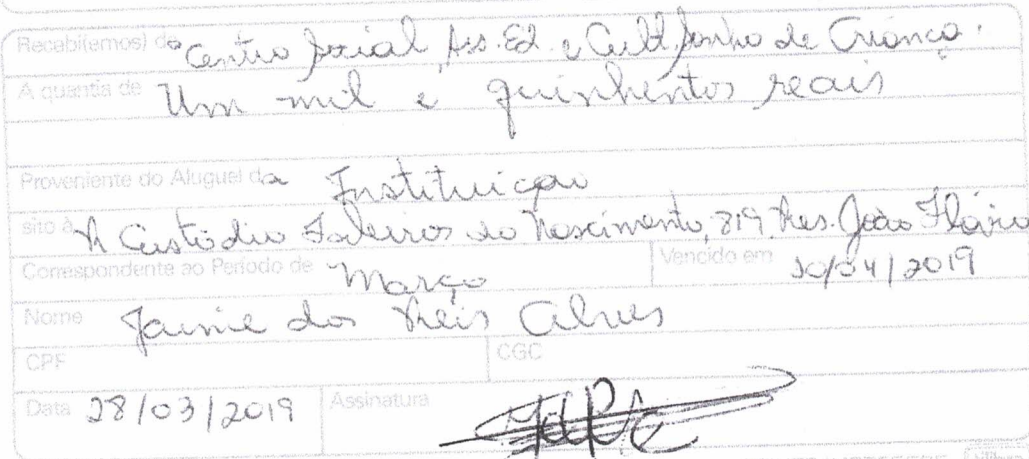 Recebi(emos) do Centro Social Ass. Ed. e Cult Sonho de Criança.
A quantia de Um mil e quinhentos reais
Proveniente do Aluguel da Instituição
sito à R Custódio do Nascimento, 819, Res. João Flávio
Correspondente ao Período de Março Vencido em 10/04/2019
Nome Jaime dos Reis Alves
CPF CGC
Data 28/03/2019 Assinatura